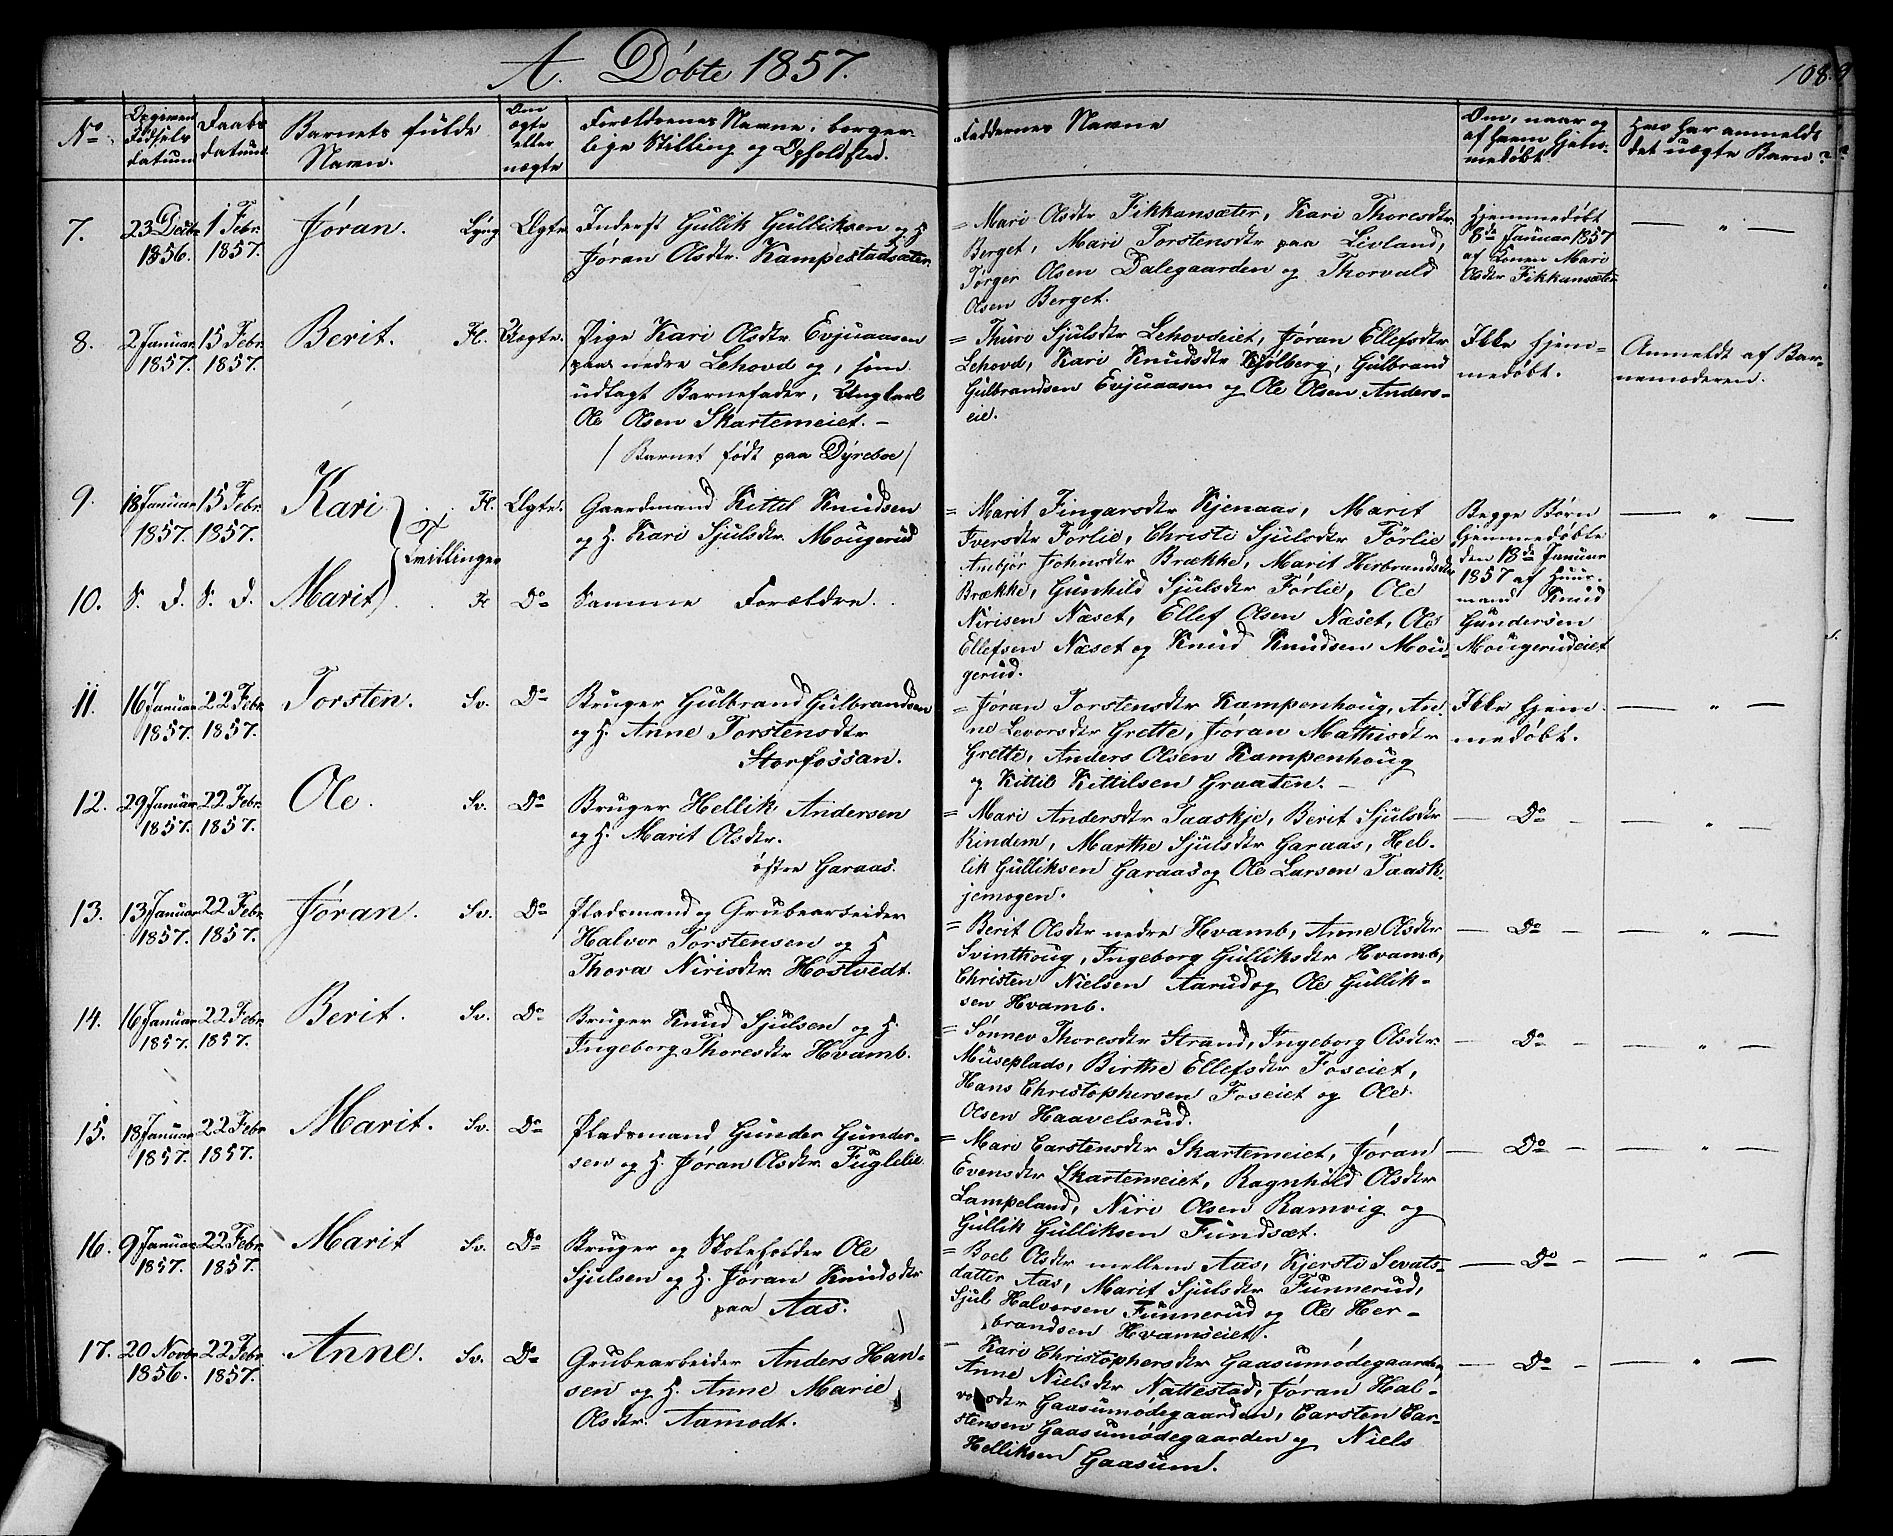 A. Døbte 1857.
108.
No.
Opgiven Fødsels datum
Daabs datum
Barnets fulde Navn.
Om ægte eller uægte
Forældrenes Navne, borgerlige Stilling og Opholdsted.
Faddernes Navne
Om, naar og af hvem hjemmedøbt
Hvo har anmeldt det uægte Barn?
7. 23 Decbr 1856. 1 Febr. 1857. Jøran. Lyng. Ægte.
Inderst Gullik Gulliksen og H.
Jøran Olsdtr. Kampestadsæter.
= Mari Olsdtr Fikkansæter, Kari Thoresdtr
Berget, Mari Torstensdtr paa Livland,
Tørger Olsen Dalegaarden og Thorvald
Olsen Berget.
Hjemmedøbt
8de Januar 1857
af Konen Mari
Olsdtr Fikkansæter
— " —
8. 2 Januar 1857. 15 Febr. 1857. Berit. Fl. Uægte.
Pige Kari Olsdtr Evjuaasen
paa nedre Lehovd og, som
udlagt Barnefader, Ungkarl
Ole Olsen Skartemeiet. –
/ Barnet født paa Dyreboe /
= Thuri Sjulsdtr Lehovdeiet, Jøran Ellefsdtr
Lehovd, Kari Knudsdtr Kjølberg, Gulbrand
Gulbrandsen Evjuaasen og Ole Olsen Anders-
eie.
Ikke hjem-
medøbt.
Anmeldt af Bar-
nemoderen.
9. 18 Januar 1857. 15 Febr. 1857. Kari Fl. Ægte.
Tvillinger
Gaardmand Kittil Knudsen
og H. Kari Sjulsdtr Mougerud
= Marit Fingarsdtr Kjenaas, Marit
Iversdtr Førlie, Christi Sjulsdtr Førlie
Ambjør Johnsdtr Brække, Marit Herbrandsdtr
Brække, Gunhild Sjulsdtr Førlie, Ole
Nirisen Næset, Ellef Olsen Næset, Ole
Ellefsen Næset og Knud Knudsen Mou-
gerud.
Begge Børn
hjemmedøbte
den 18de Januar
1857 af Huus-
mand Knud
Gundersen
Mougerudeiet
— " —
10. S. D. S. D. Marit. Fl. Do
Samme Forældre.
11. 16 Januar 1857. 22 Febr. 1857. Torsten. Sv. Do
Bruger Gulbrand Gulbrandsen
og H. Anne Torstensdtr
Storfossan.
= Jøran Torstensdtr Kampenhoug, An-
ne Levorsdtr Grette, Jøran Mathisdtr
Grette, Anders Olsen Kampenhoug
og Kittil Kittilsen Graaten. –
Ikke hjem-
medøbt.
— " —
12. 29 Januar 1857. 22 Febr. 1857. Ole. Sv. Do
Bruger Hellik Andersen
og H. Marit Olsdtr.
østre Garaas.
= Mari Andersdtr Taaskje, Berit Sjulsdtr
Rindem, Marthe Sjulsdtr Garaas, Hel-
lik Gulliksen Garaas og Ole Larsen Taask-
jemogen.
— Do —
— " —
13. 13 Januar 1857. 22 Febr. 1857. Jøran. Sv. Do
Pladsmand og Grubearbeider
Halvor Torstensen og H
Thora Nirisdtr Hostvedt.
= Berit Olsdtr nedre Hvamb, Anne Olsdtr
Svinthoug, Ingeborg Gulliksdtr Hvamb,
Christen Nielsen Aarud og Ole Gullik-
sen Hvamb.
— Do —
— " —
14. 16 Januar 1857. 22 Febr. 1857. Berit. Sv. Do
Bruger Knud Sjulsen og H.
Ingeborg Thoresdtr Hvamb.
= Sønnev Thoresdtr Strand, Ingeborg Olsdtr
Museplads, Birthe Ellefsdtr Foseiet,
Hans Christophersen Foseiet og Ole
Olsen Haavelsrud.
— Do —
— " —
15. 18 Januar 1857. 22 Febr 1857. Marit. Sv. Do
Pladsmand Gunder Gunder-
sen og H. Jøran Olsdtr Fuglelie
= Mari Carstensdtr Skartemeiet, Jøran
Evensdtr Skartemeiet, Ragnhild Olsdtr
Lampeland, Niri Olsen Ramvig og
Gullik Gulliksen Fundsæt.
— Do —
— " —
16. 9 Januar 1857. 22 Febr. 1857. Marit Sv. Do
Bruger og Skoleholder Ole
Sjulsen og H. Jøran Knudsdtr
paa Aas.
= Boel Olsdtr mellem Aas, Kjersti Sevats-
datter Aas, Marit Sjulsdtr Funnerud,
Sjul Halvorsen Funnerud og Ole Her-
brandsen Hvamseiet.
— Do —
— " —
17. 20 Novbr 1856. 22 Febr. 1857. Anne. Sv. Do
Grubearbeider Anders Han-
sen og H. Anne Marie
Olsdtr. Aamodt.
– Kari Christophersdtr Gaasumødegaarden,
Anne Nielsdtr Nattestad, Jøran Hal-
vorsdtr Gaasumødegaarden, Carsten Car-
stensen Gaasumødegaarden og Niels
Helliksen Gaasum.
— Do —
— " —